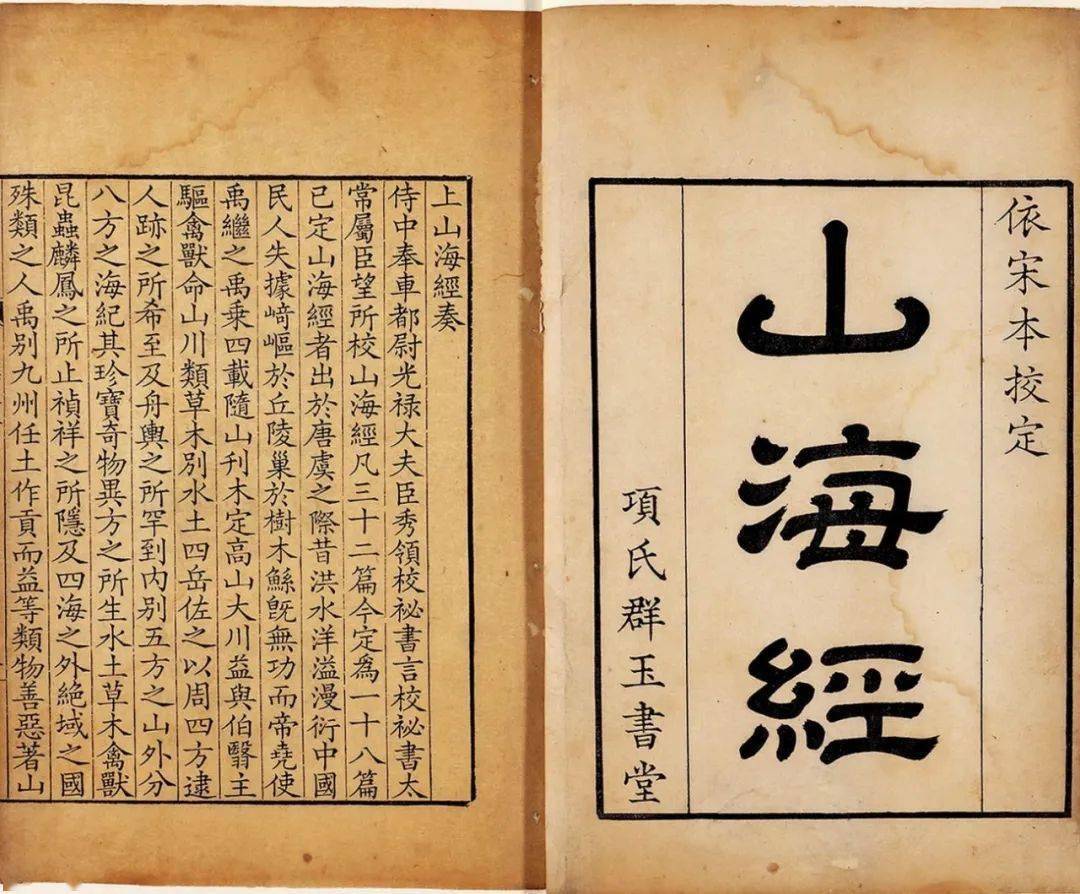 依宋本挍定
山海經
項氏群玉書堂
上山海經奏
侍中奉車都尉光禄大夫臣秀領校祕書言校祕書太
常屬臣望所校山海經凡三十二篇今定爲一十八篇
已定山海經者出於唐虞之際昔洪水洋溢漫衍中國
民人失據崎嶇於丘陵巢於樹木鯀旣無功而帝堯使
禹繼之禹乘四載隨山刊木定高山大川益與伯翳主
驅禽獸命山川類草木別水土四岳佐之以周四方逮
人跡之所希至及舟輿之所罕到内别五方之山外分
八方之海紀其珍寶奇物異方之所生水土草木禽獸
昆蟲麟鳳之所止禎祥之所隱及四海之外絶域之國
殊類之人禹别九州任土作貢而益等類物善惡著山